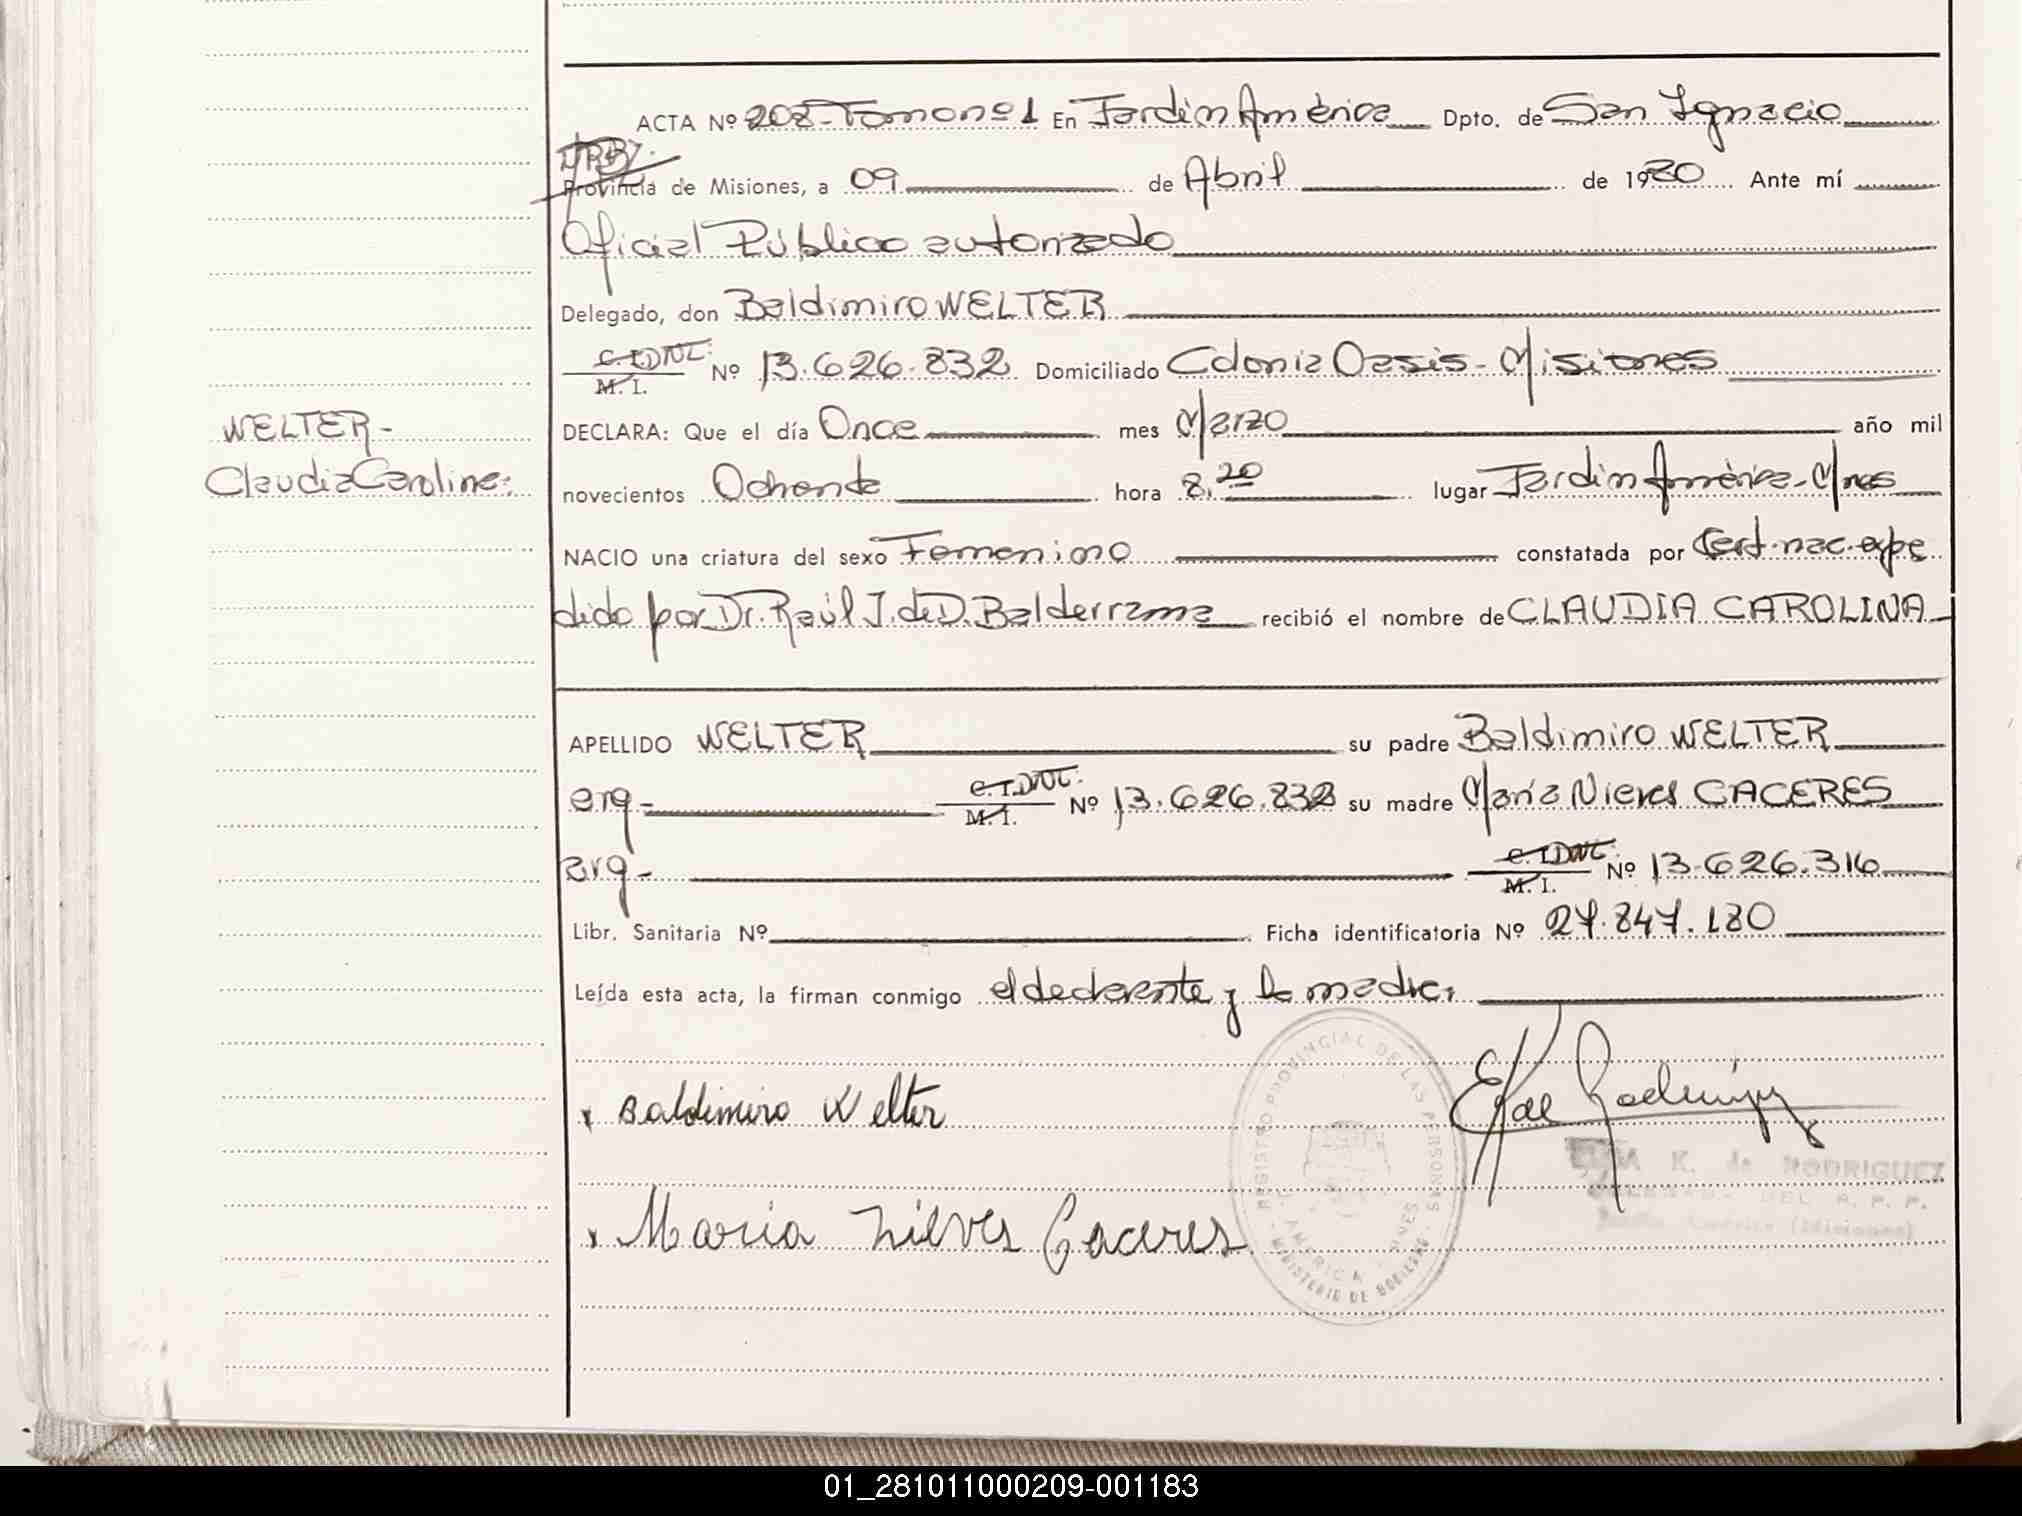 ACTA Nº 208-Tomo nº 1 En Jardín América Dpto. de San Ignacio
Provincia de Misiones, a 09 de Abril de 1980 Ante mí
Oficial Público autorizado
Delegado, don Baldimiro WELTER
M.I. Nº 13.626.832 Domiciliado Colonia Oasis - Misiones
WELTER- DECLARA: Que el día Once mes Marzo año mil
Claudia Carolina: novecientos Ochenta hora 8,20 lugar Jardín América-Mnes
NACIO una criatura del sexo Femenino constatada por Cert. nac. expe
dido por Dr. Raúl J. de D. Balderrama recibió el nombre de CLAUDIA CAROLINA
APELLIDO WELTER su padre Baldimiro WELTER
arg- M.I. Nº 13.626.832 su madre María Nieves CACERES
arg- M.I. Nº 13.626.316
Libr. Sanitaria Nº Ficha identificatoria Nº 27.847.180
Leída esta acta, la firman conmigo el declarante y la madre.
x Baldimiro Welter
x Maria Nieves Caceres
REGISTRO PROVINCIAL DE LAS PERSONAS
MINISTERIO DE GOBIERNO
K. de RODRIGUEZ
01_281011000209-001183